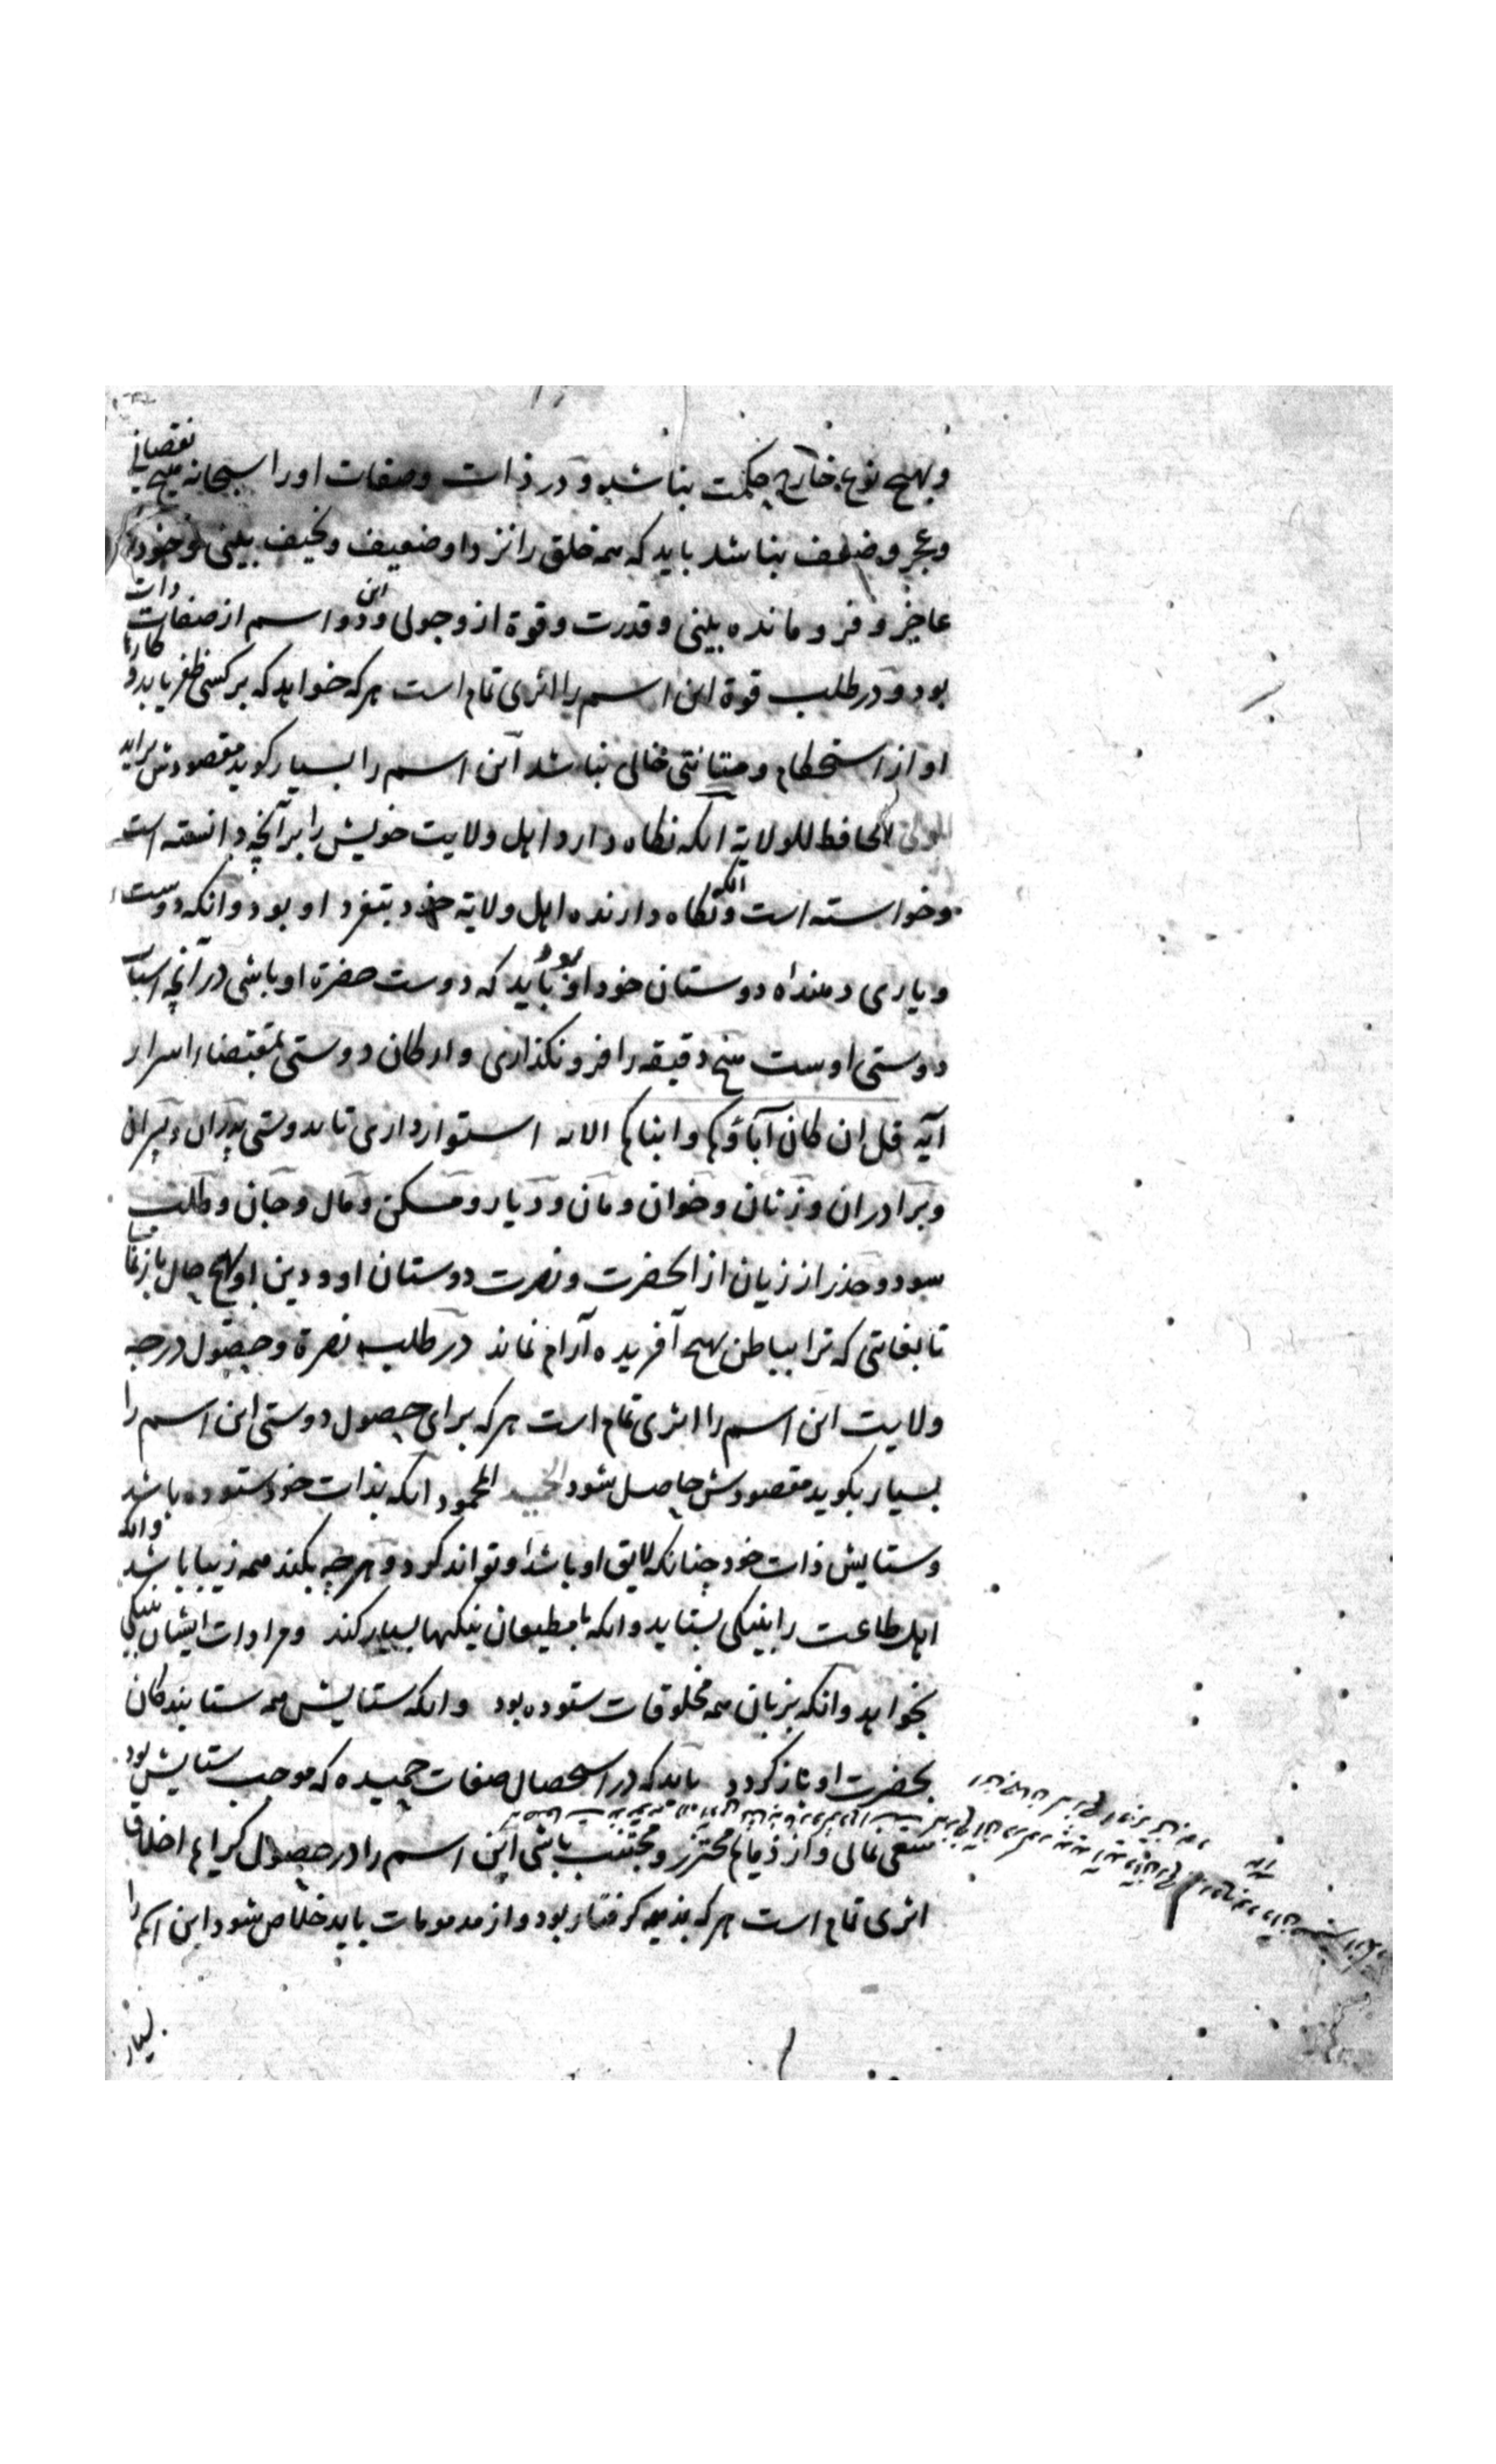 وبهیچ نوع خارج حکمت نباشد و در ذات وصفات او را سبحانه هیچ نقصانی
وعجز وضعف نباشد باید که همه خلق را نزد او ضعیف ونحیف بینی وخود را
عاجز و فرومانده بینی وقدرت وقوة ازو جوئی واین دو اسم از صفات ذات
بود و در طلب قوة این اسم را اثری تمام است هر که خواهد که بر کسی ظفر یابد و کارها
او از استحکام ومتانتی خالی نباشد این اسم را بسیار کوید مقصودش براید
الولی الحافظ للولایة انکه نکاه دارد اهل ولایت خویش را بر آنچه دانسته است
وخواسته است وانکه نکاه دارنده اهل ولایة خود بتفرد او بود وانکه دوست
ویاری دهنده دوستان خود او بود باید که دوست حضرة او باشی در آنچه اسباب
دوستی اوست هیچ دقیقه را فرو نکذاری وارکان دوستی بمقتضاء اسرار
آیه قل ان کان آباؤکم وابناکم الایه استوار داری تا بدوستی پدران وپسران
وبرادران وزنان وخوان ومان ودیار ومسکن ومال وجان وطلب
سود وحذر از زیان از الحضرت ونصرت دوستان او ودین او بهیچ حال باز نمانی
تا بغایتی که ترا بباطن بهیچ آفریده آرام نماند در طلب نصرة وحصول درجه
ولایت این اسم را اثری تمام است هر که برای حصول دوستی این اسم را
بسیار بکوید مقصودش حاصل شود الحمید المحمود انکه بذات خود ستوده باشد
وستایش ذات خود چنانکه لایق او باشد او تواند کرد و هر چه بکند همه زیبا باشد وانکه
اهل طاعت را بنیکی بستاید وانکه با مطیعان نیکیها بسیار کند ومرادات ایشان بنیکی
بخواهد وانکه بزبان همه مخلوقات ستوده بود وانکه ستایش همه ستایندکان
بحضرت او باز کردد باید که در استحصال صفات حمیده که موجب ستایش بود
سعی نمائی و از ذمایم محترز ومجتنب باشی این اسم را در حصول کرایم اخلاق
اثری تمام است هر که بذمیمه کرفتار بود و از مذمومات باید خلاص شود این اسم را
بسیار